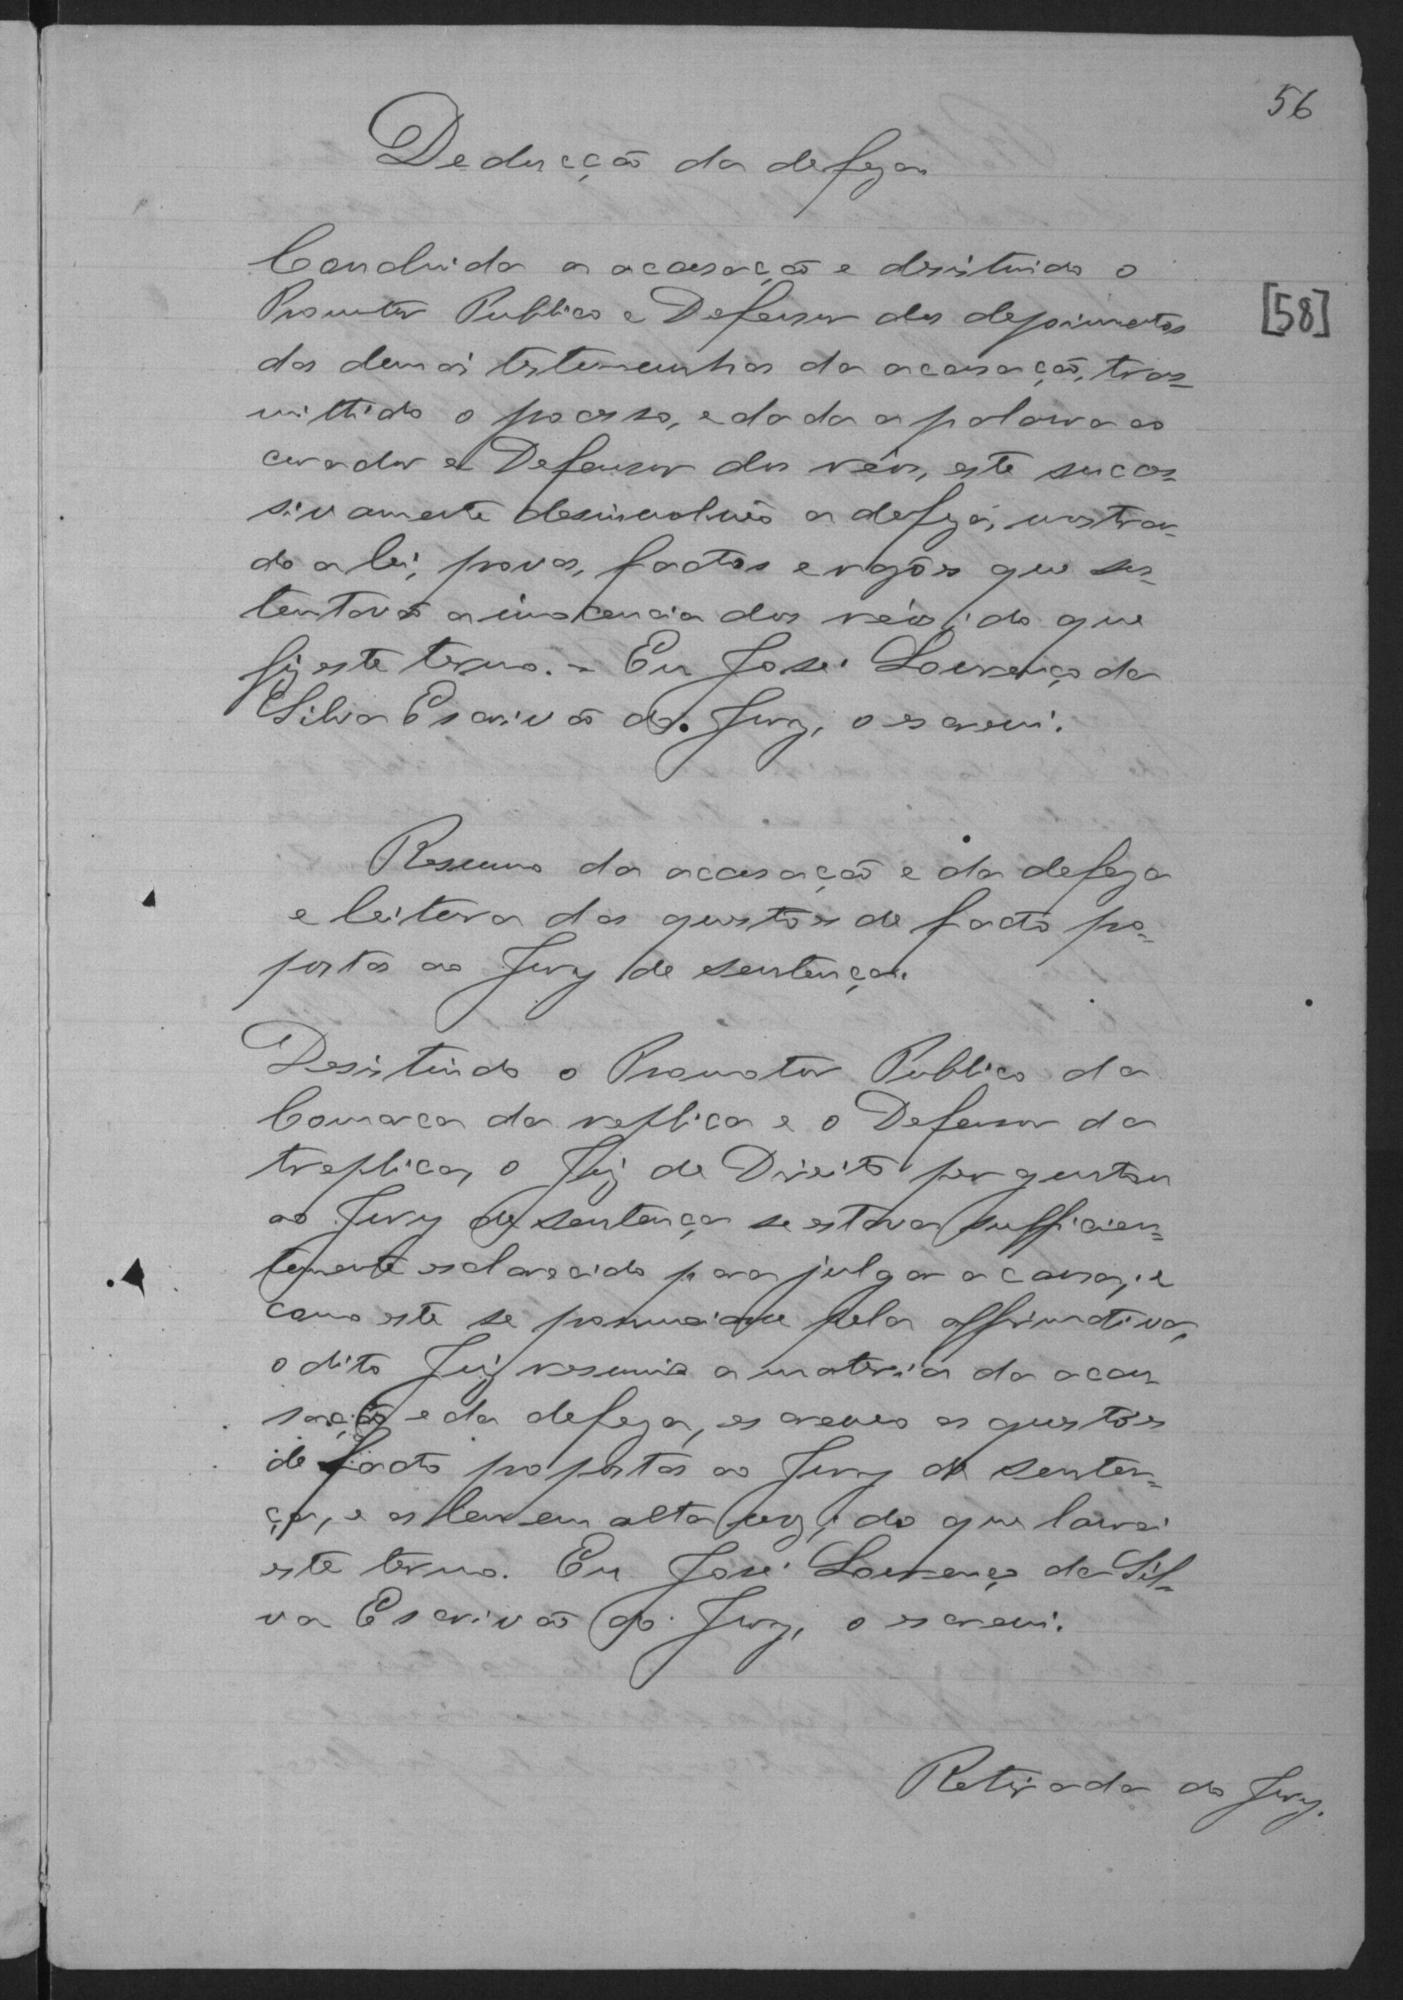 56
Deducção da defeza
Concluida a acusação e desistindo o
[58]
Promotor Publico e Defensor dos depoimentos
das demais testemunhas da acusação, trans-
mittido o processo, e dada a palavra ao
curador e Defensor dos réos, este succes-
sivamente desinvolveo a defeza, mostran-
do a lei, provas, factos e razões que sus-
tentavão a inocencia dos réos; do que
fiz este termo. - Eu José Lourenço da
Silva Escrivão do Jury, o escrevi.
Resumo da acusação e da defeza
e leitura das questões de facto pro-
postas ao Jury de sentença.
Desistindo o Promotor Publico da
Comarca da replica e o Defensor da
treplica, o Juiz de Direito perguntou
ao Jury de sentença se estava sufficien-
temente esclarecido para julgar a causa, e
como este se pronunciasse pela affirmativa,
o dito Juiz resumio a materia da acu-
sação e da defeza, escreveo as questões
de facto propostas ao Jury de senten-
ça, e as leu em alta voz; do que lavrei
este termo. Eu José Lourenço da Sil-
va Escrivão do Jury, o escrevi.
Retirada do Jury.